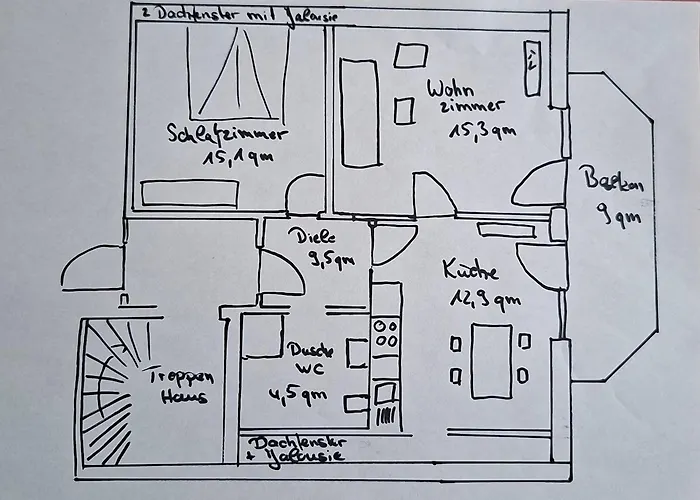 2 Dachfenster mit Jalousie
Schlafzimmer
15,1 qm
Wohn
zimmer
15,3 qm
Balkon
9 qm
Diele
9,5 qm
Küche
12,9 qm
Dusche
WC
4,5 qm
Treppen
Haus
Dachfenster
+ Jalousie